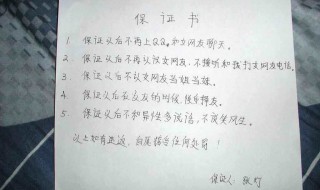 保证书
1. 保证以后不再上QQ和女网友聊天。
2. 保证以后不再认识女网友、不接听和我打女网友电话。
3. 保证以后不认女网友当姐当妹。
4. 保证以后在交友的时候,慎重择友。
5. 保证以后不和异性多说话,不谈笑风生。
以上如有违返,自愿接受任何处罚!
保证人: